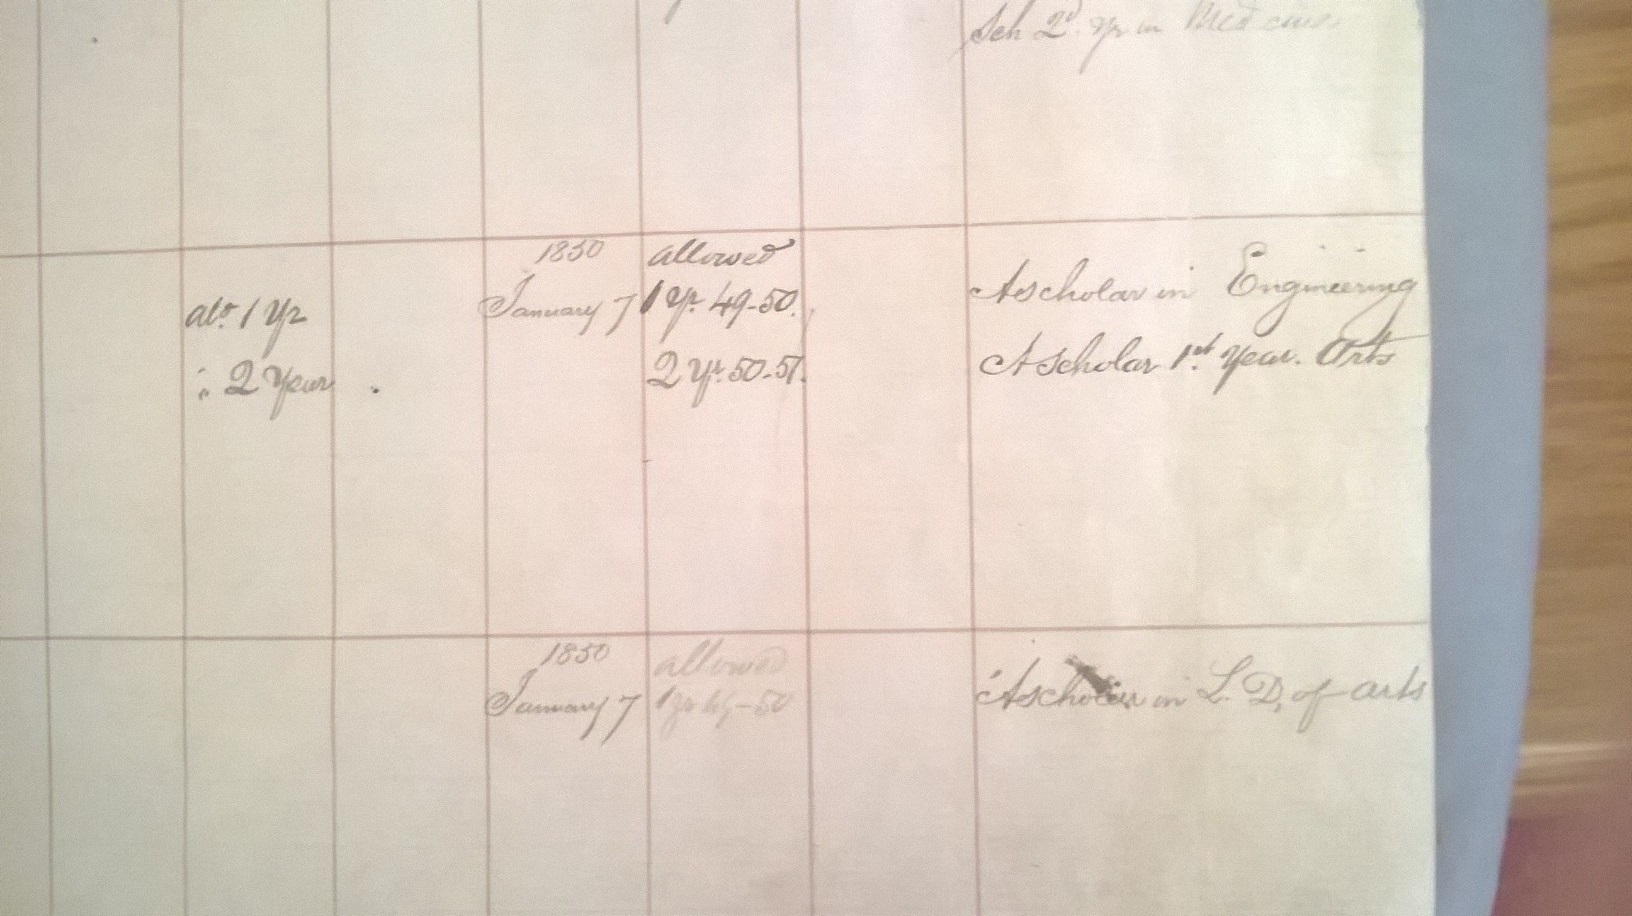 Sch 2d. Yr in Medicine
1850 allowed
ato. 1 Yr January 7 1 Yr. 49-50. A scholar in Engineering
" 2 Year 2 Yr. 50-51. A Scholar 1st. Year. Arts
1850 allowed
January 7 1 yr 49-50 A scholar in L. D. of arts